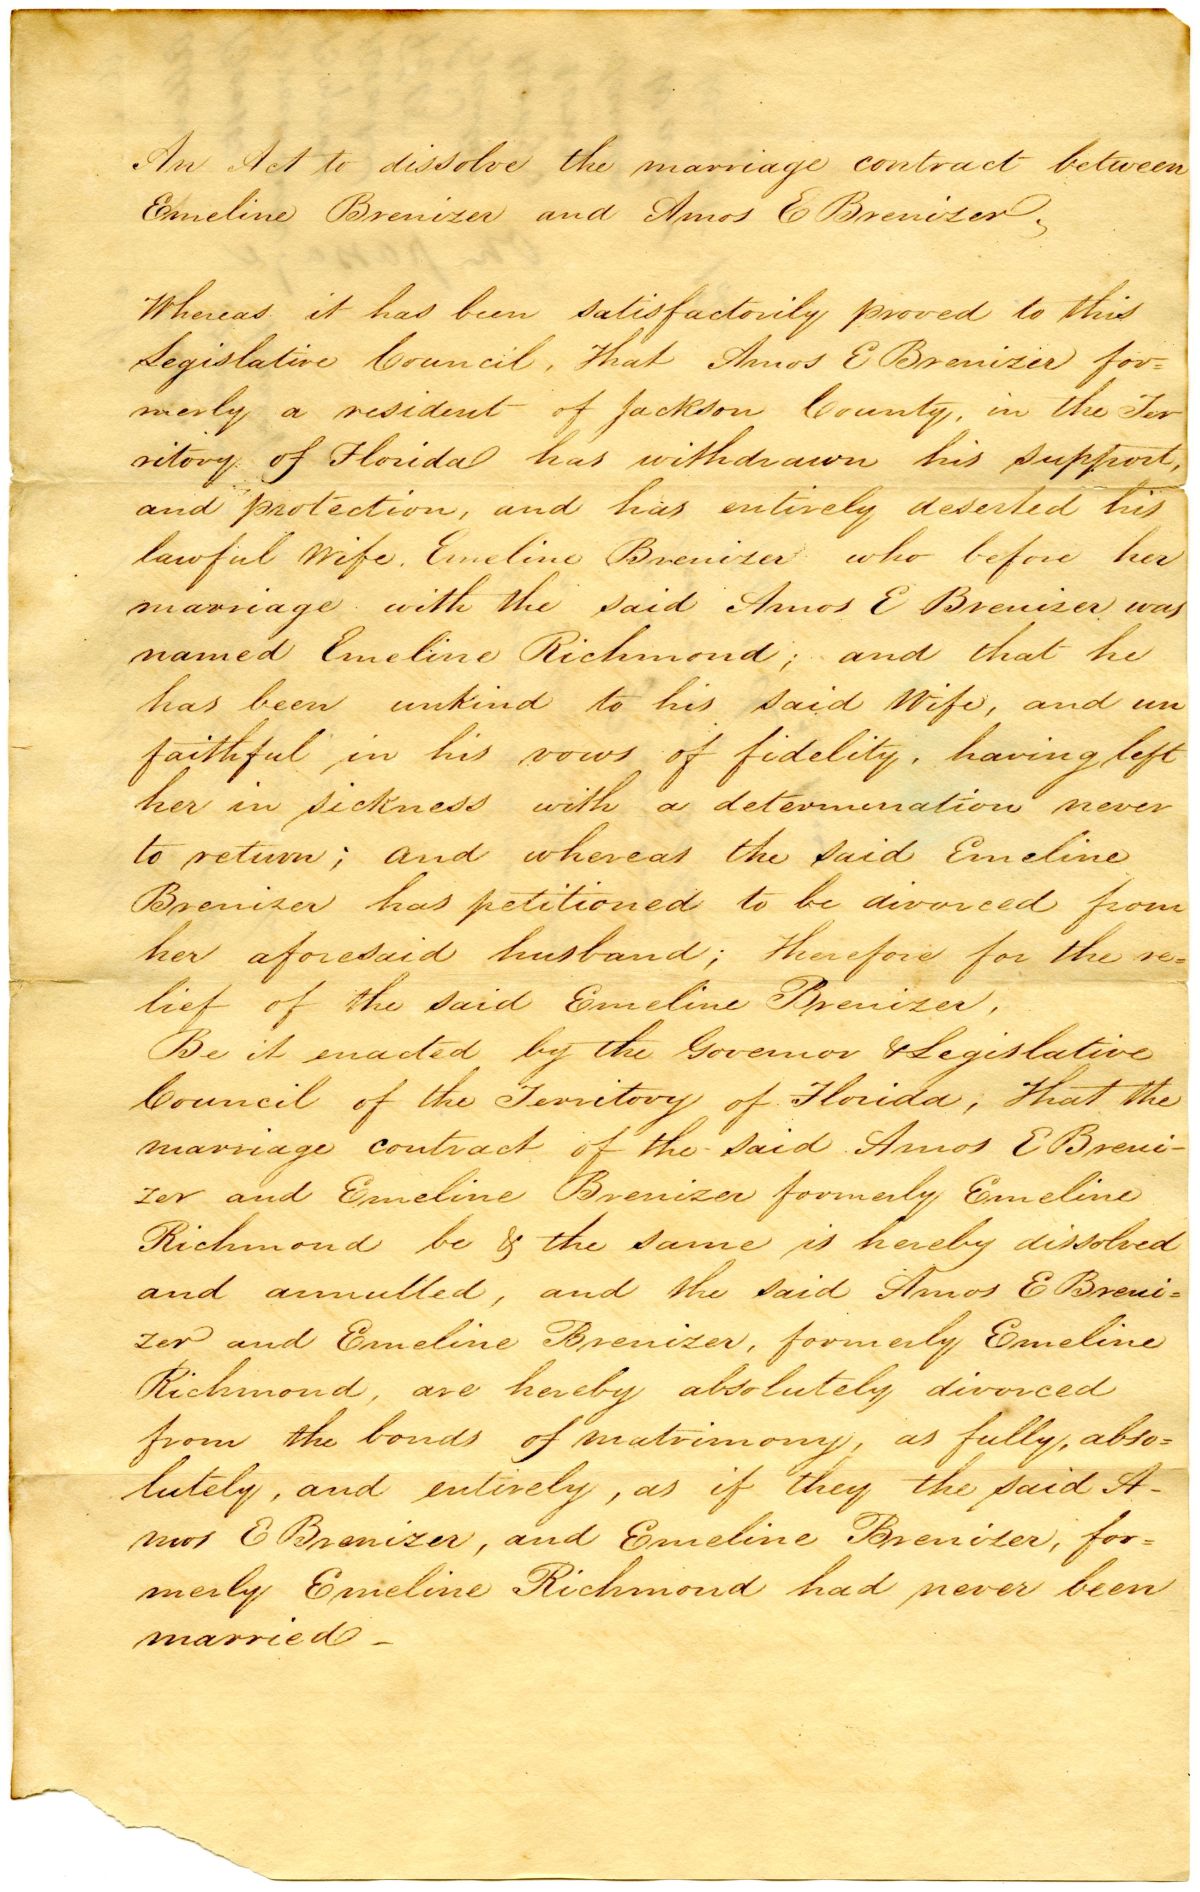 An Act to dissolve the marriage contract between
Emeline Brenizer and Amos E Brenizer,
Whereas it has been satisfactorily proved to this
Legislative Council, that Amos E Brenizer for=
merly a resident of Jackson County, in the Ter
ritory of Florida has withdrawn his support,
and protection, and has entirely deserted his
lawful Wife, Emeline Brenizer who before her
marriage with the said Amos E Brenizer was
named Emeline Richmond; and that he
has been unkind to his said Wife, and un
faithful in his vows of fidelity, having left
her in sickness with a determination never
to return; and whereas the said Emeline
Brenizer has petitioned to be divorced from
her aforesaid husband; therefore for the re=
lief of the said Emeline Brenizer,
Be it enacted by the Governor & Legislative
Council of the Territory of Florida, that the
marriage contract of the said Amos E Breni-
zer and Emeline Brenizer formerly Emeline
Richmond be & the same is hereby dissolved
and annulled, and the said Amos E Breni=
zer and Emeline Brenizer, formerly Emeline
Richmond, are hereby absolutely divorced
from the bonds of matrimony, as fully, abso=
lutely, and entirely, as if they the said A-
mos E Brenizer, and Emeline Brenizer, for=
merly Emeline Richmond had never been
married -